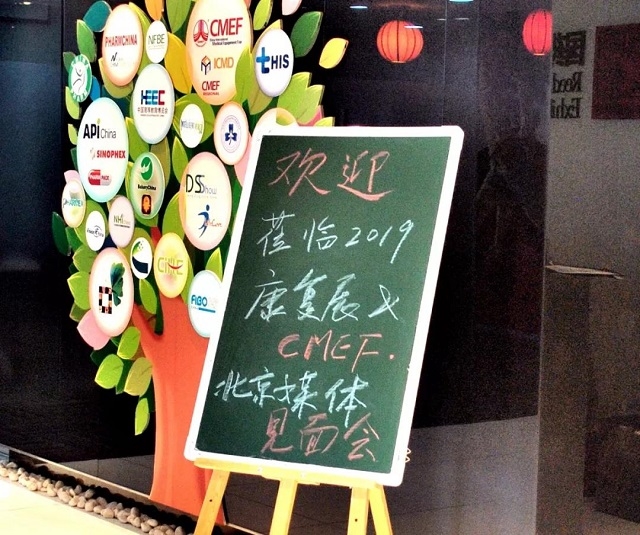 PHARMCHINA
NFBE
CMEF
ICMD
CMEF
tHIS
HEEC
API China
SINOPHEX
DSShow
NHI
CIHIE
AIBO
欢迎
莅临2019
康复展&
CMEF.
北京媒体
见面会
Reed
Exhi